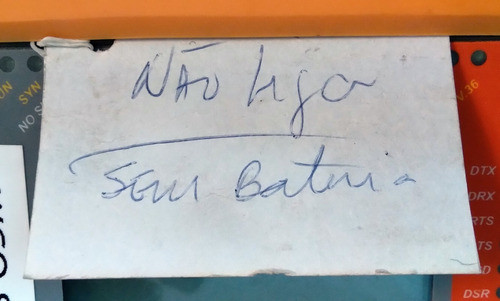 Não liga
Sem Bateria
SYN
NO S
V.36
DTX
DRX
RTS
TS
DSR